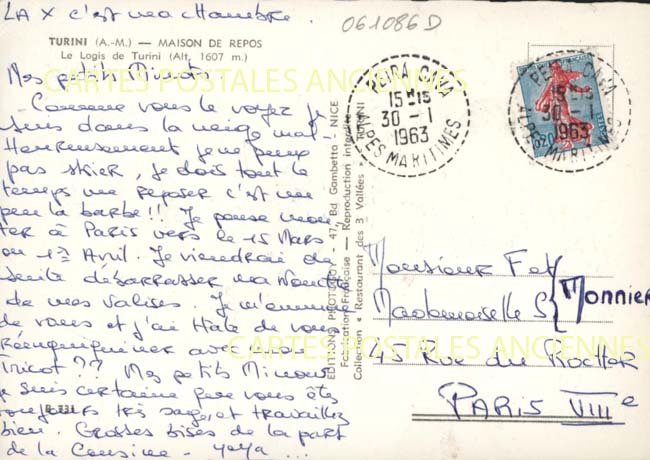 LA X c'est ma chambre.
061086D
TURINI (A.-M.) — MAISON DE REPOS
Le Logis de Turini (Alt. 1607 m.)
Mes petits Minous.
Comme vous le voyez je
suis dans la neige mal-
heureusement je ne peux
pas skier, je dois tout le
temps me reposer c'est un
peu la barbe!! Je pense mon-
ter à Paris vers le 15 Mars
ou 1er Avril. Je viendrai de
suite débarrasser ma
de mes valises. Je m'ennuie
de vous et j'ai Hâte de vous
avec mon
tricot?? Mes petits Minous
je suis certaine que vous êtes
toujours très sages et travaillez
bien. Grosses bises de la part
de la Cousine - yoya ...
EDITIONS - 47, Bd Gambetta - NICE
Fabrication Française — Reproduction interdite
Collection « Restaurant des 3 Vallées » TURINI
PEIRA-CAVA
15H15
30 - 1
1963
ALPES MARITIMES
PEIRA-CAVA
15H15
30 - 1
1963
ALPES MARITIMES
0,20
Monsieur F et
Mademoiselle S { Monnier
45 Rue du Rocher
PARIS VIIIe
CARTES POSTALES ANCIENNES
CARTES POSTALES ANCIENNES